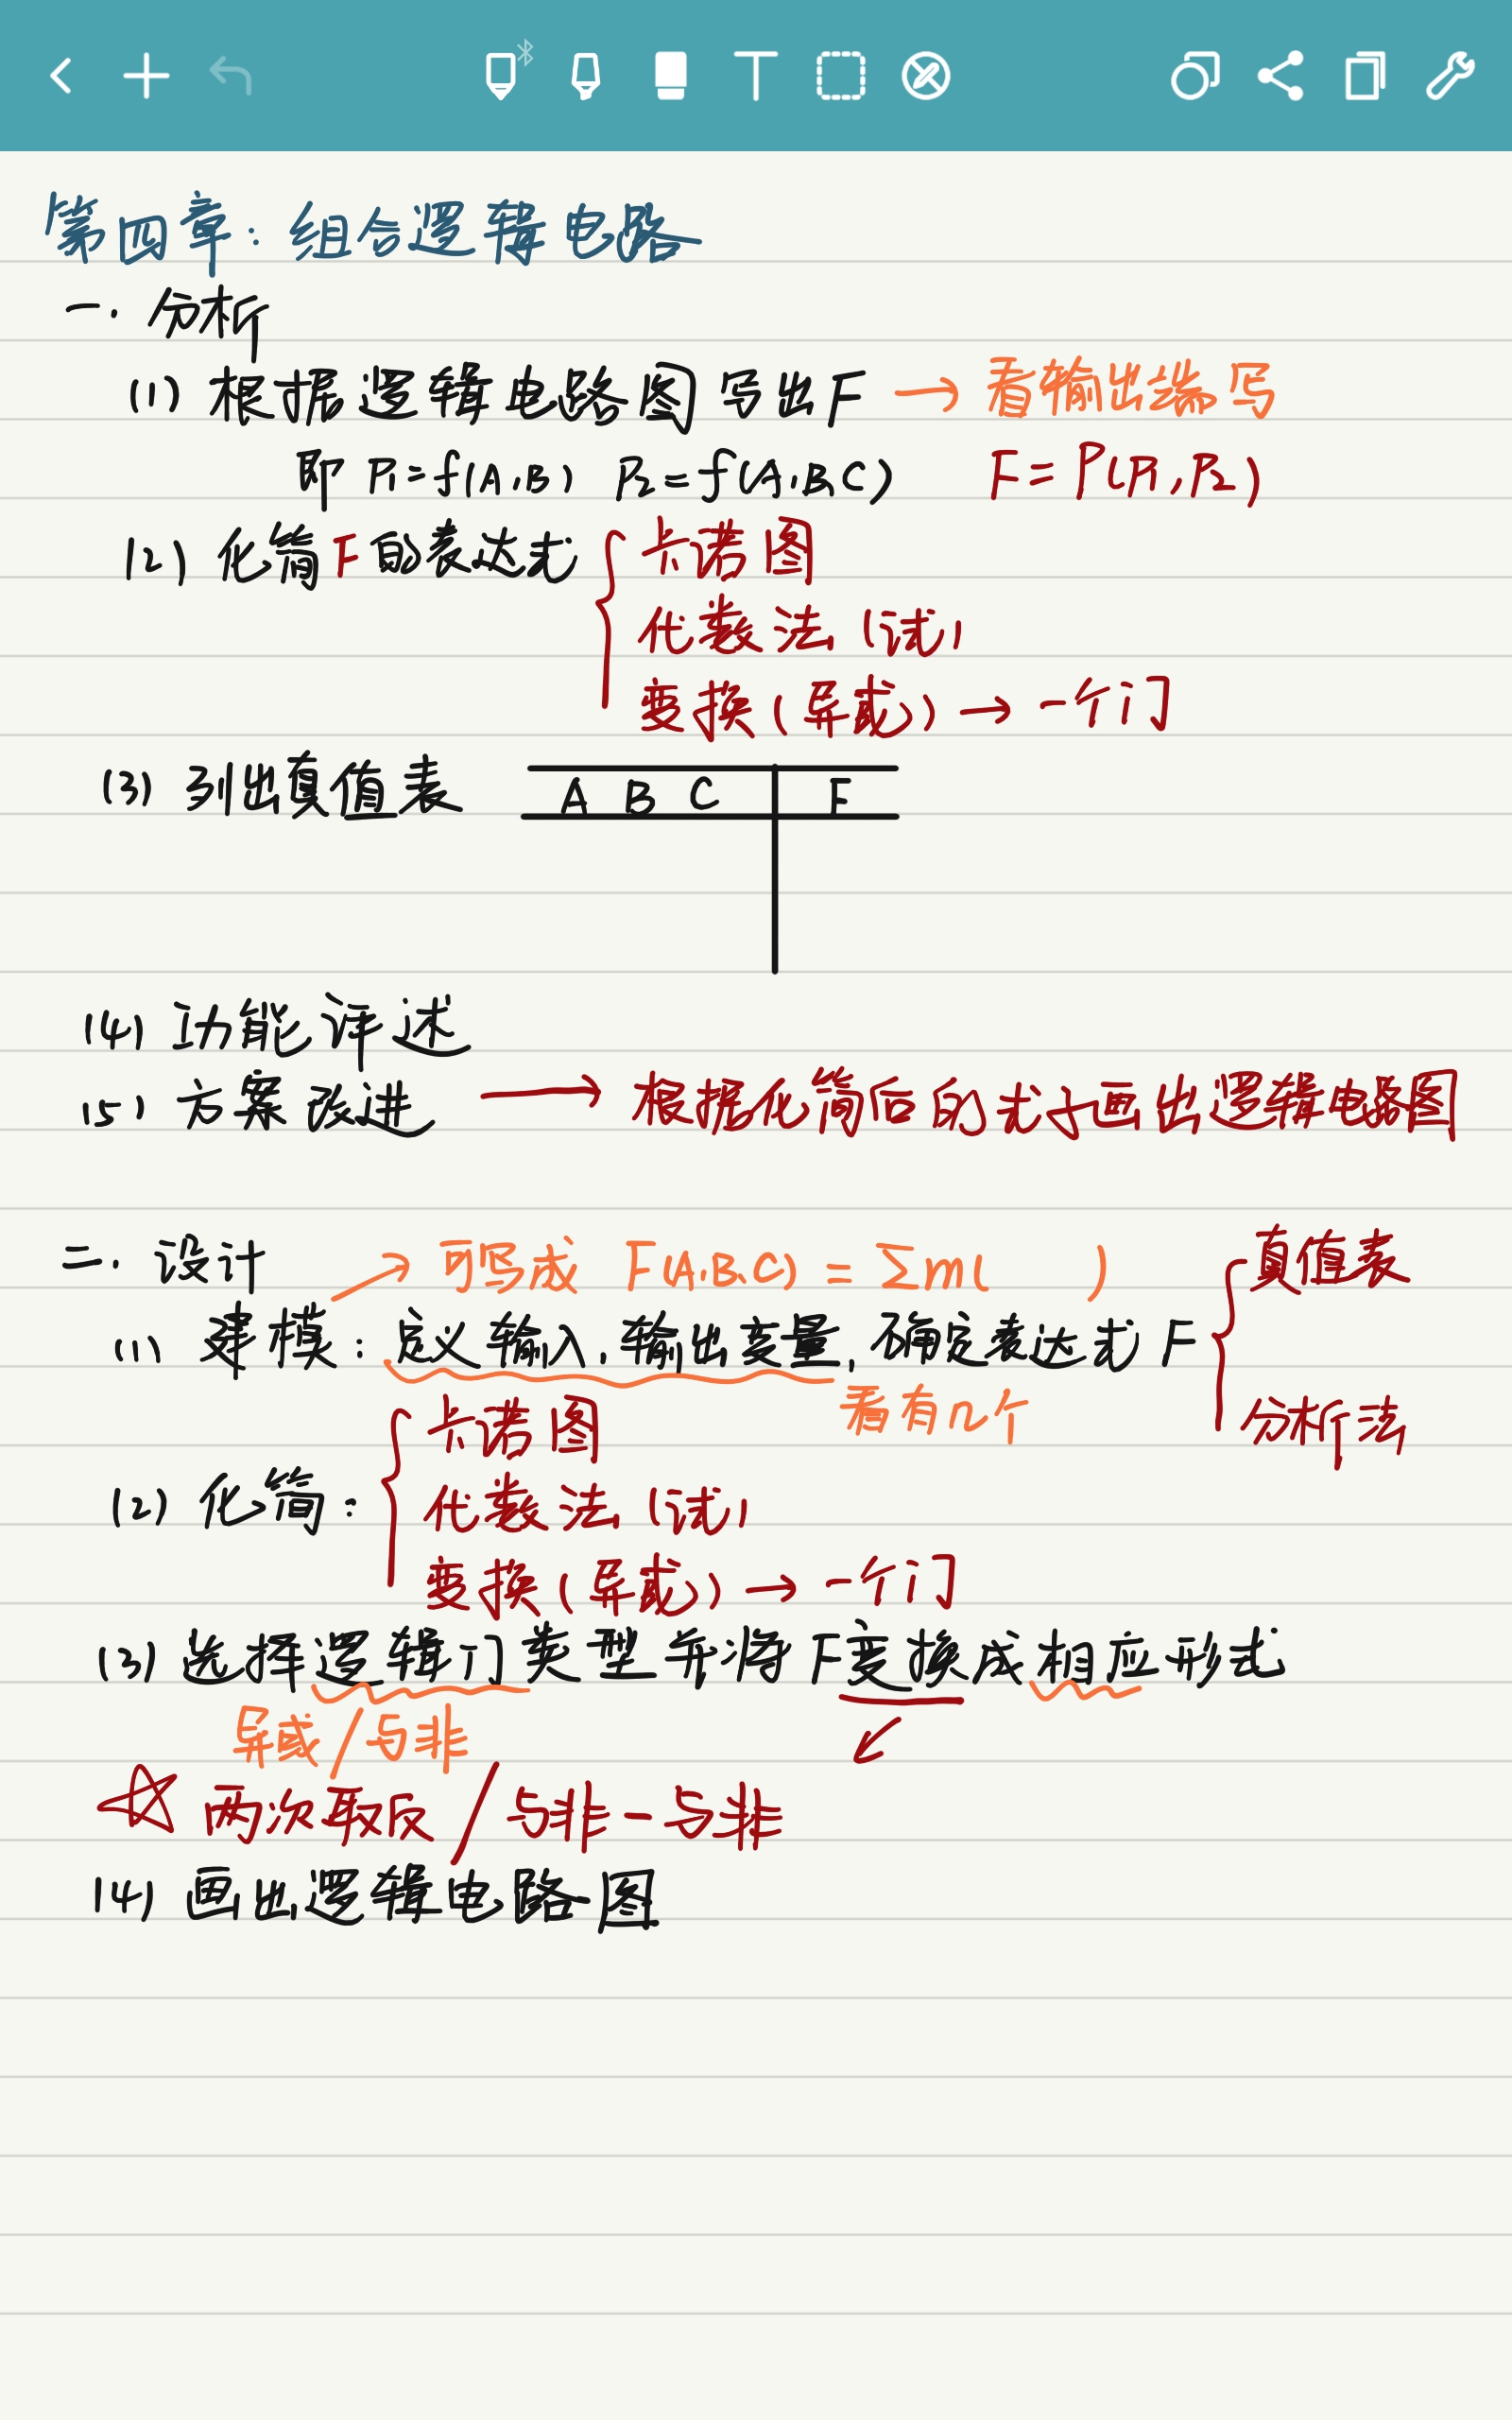 第四章：组合逻辑电路
一. 分析
(1) 根据逻辑电路图写出F → 看输出端写
即 P1=f(A,B) P2=f(A,B,C) F=P(P1,P2)
(2) 化简F的表达式 卡诺图
代数法（试）
变换（异或）→ 一个门
(3) 列出真值表
A B C F
(4) 功能评述
(5) 方案改进 → 根据化简后的式子画出逻辑电路图
二. 设计 → 可写成 F(A,B,C) = Σm( ) 真值表
(1) 建模：定义输入,输出变量,确定表达式 F
看有几个 分析法
卡诺图
(2) 化简： 代数法（试）
变换（异或）→ 一个门
(3) 选择逻辑门类型并将F变换成相应形式
异或/与非
☆ 两次取反/与非-与非
(4) 画出逻辑电路图